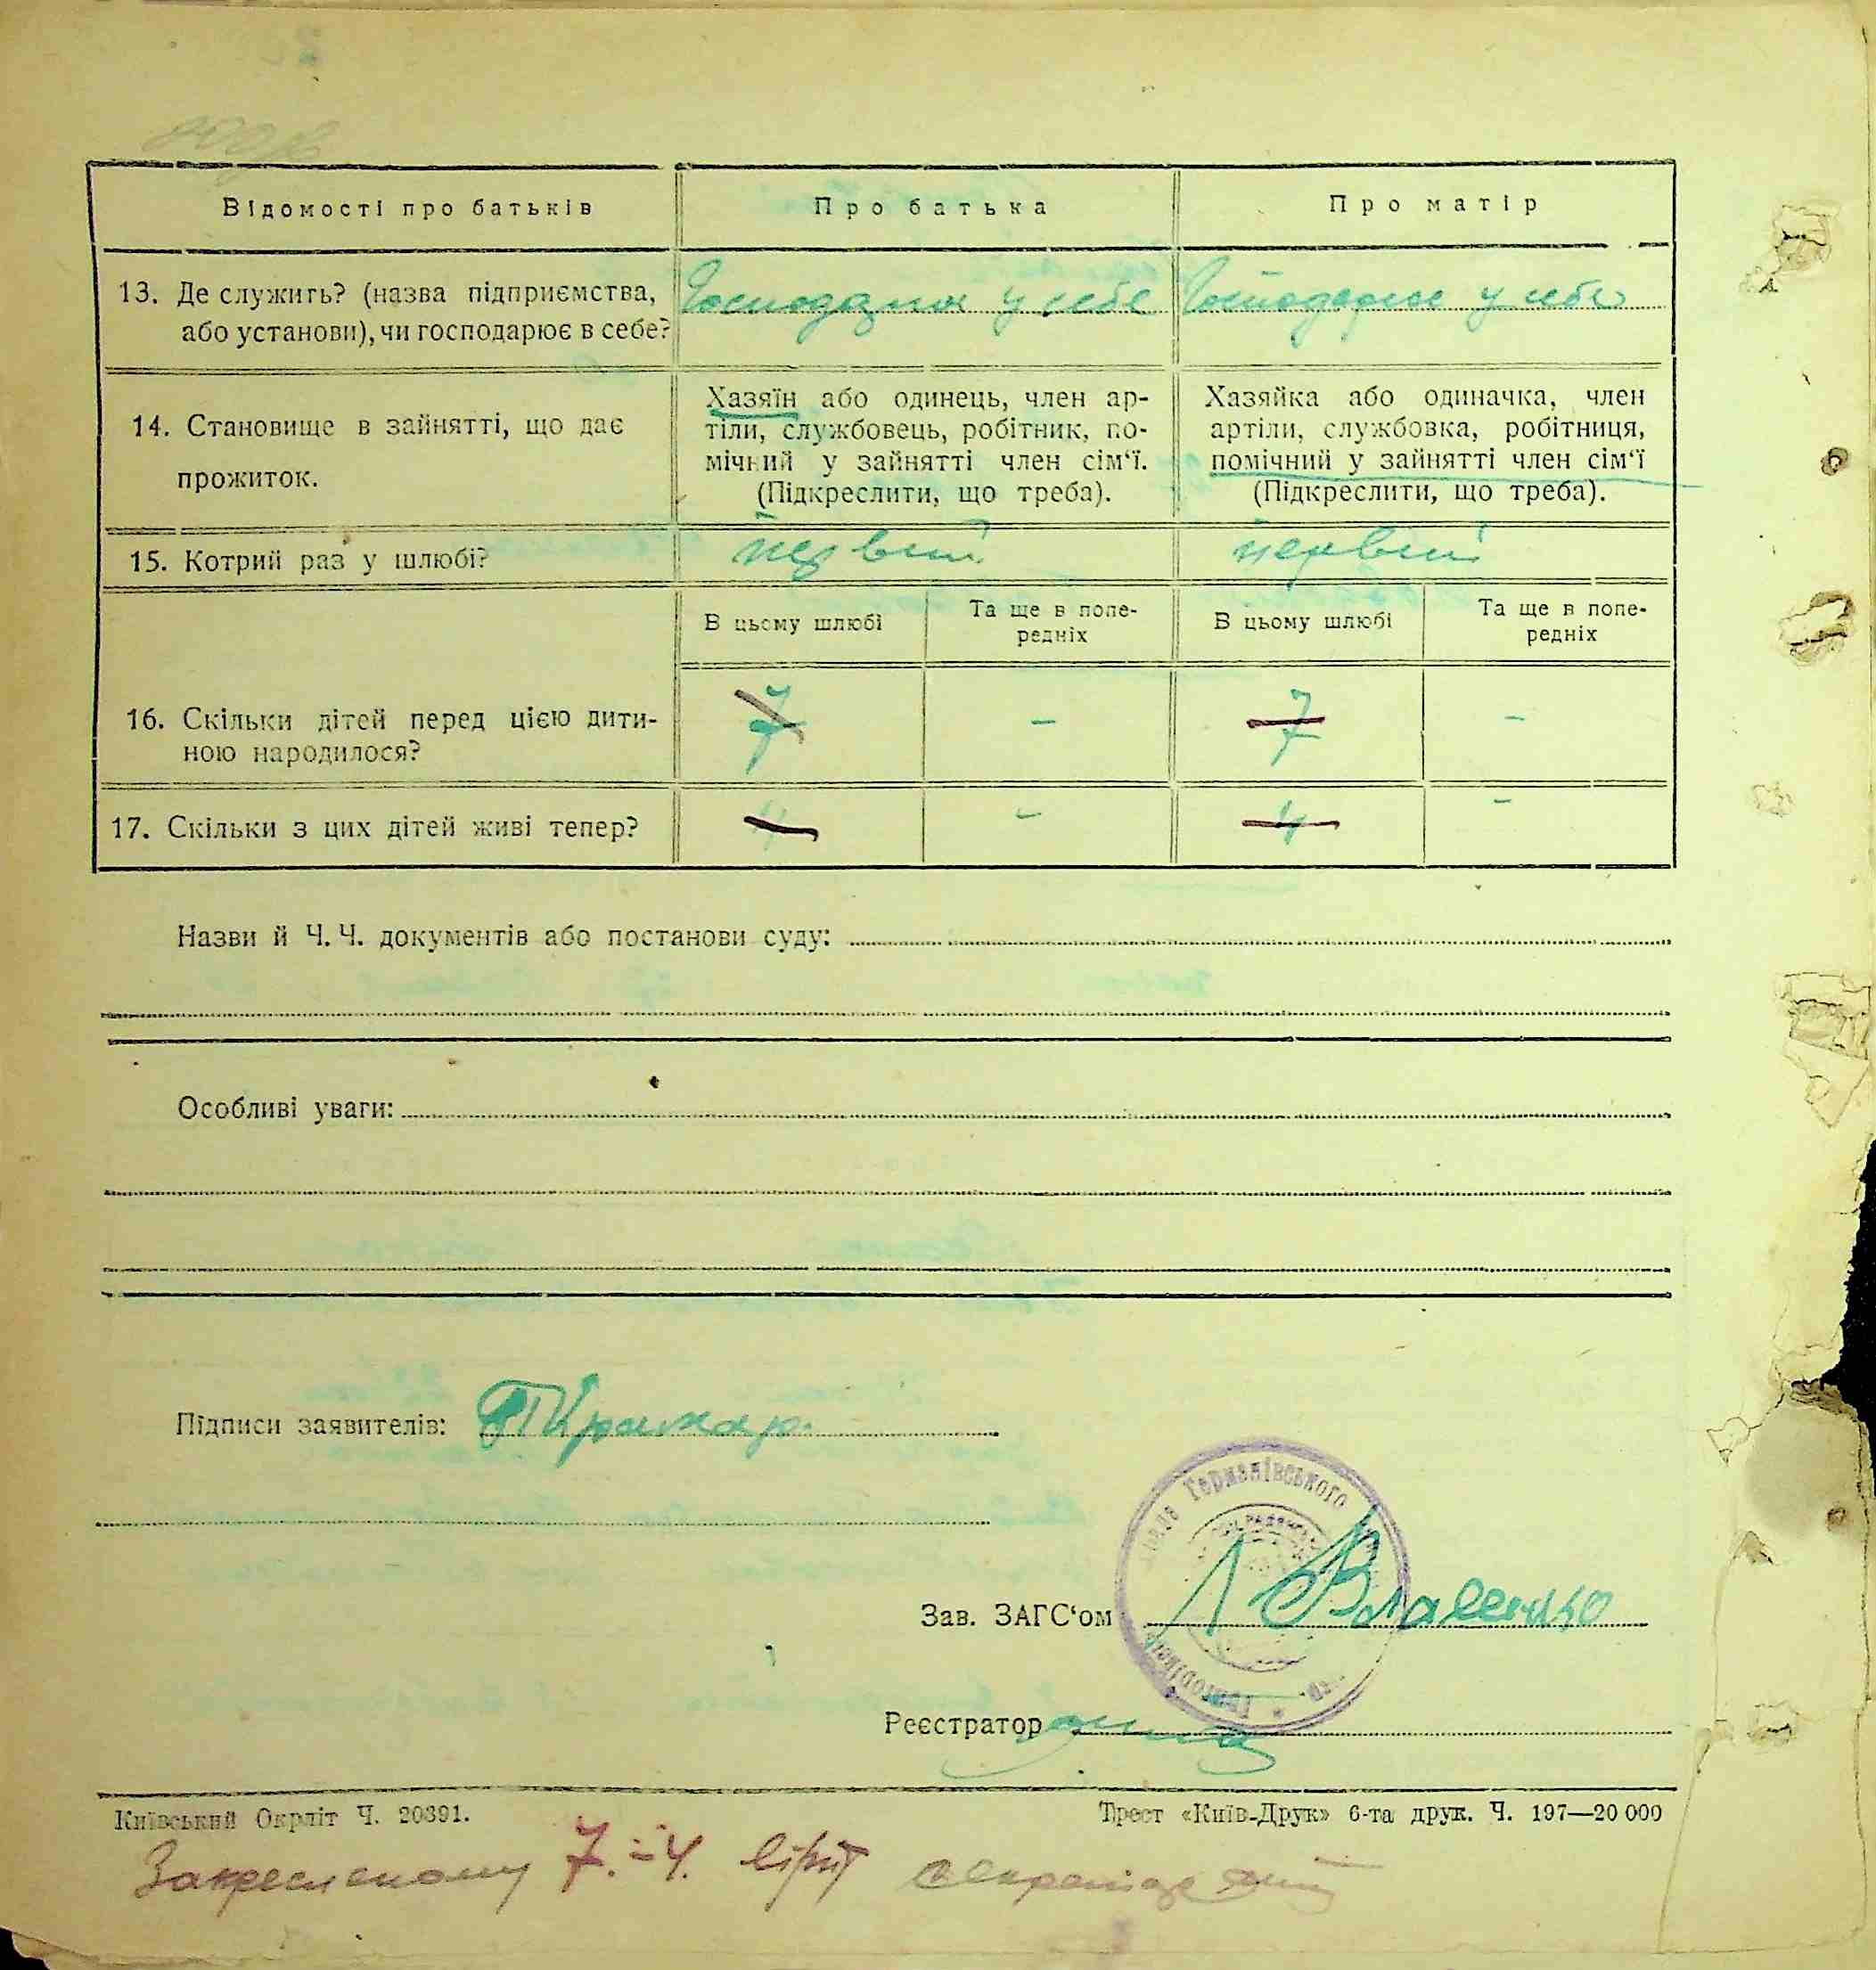 Відомості про батьків
Про батька
Про матір
13. Де служить? (назва підприємства, або установи), чи господарює в себе?
Господарює у себе
Господарює у себе
14. Становище в зайнятті, що дає прожиток.
Хазяїн або одинець, член ар-
тіли, службовець, робітник, по-
мічний у зайнятті член сім‘ї.
(Підкреслити, що треба).
Хазяйка або одиначка, член
артіли, службовка, робітниця,
помічний у зайнятті член сім‘ї
(Підкреслити, що треба).
15. Котрий раз у шлюбі?
первий
первий
В цьому шлюбі
Та ще в попе-
редніх
В цьому шлюбі
Та ще в попе-
редніх
16. Скільки дітей перед цією дити-
ною народилося?
7 - 7 -
17. Скільки з цих дітей живі тепер?
4 - 4 -
Назви й Ч. Ч. документів або постанови суду:
Особливі уваги:
Підписи заявителів: Крамар.
Германівського
Зав. ЗАГС‘ом Власенко
Реєстратор
Київський Окрліт Ч. 20391.
Трест «Київ-Друк» 6-та друк. Ч. 197—20 000
Закресленому 7.-4. вірит секретар